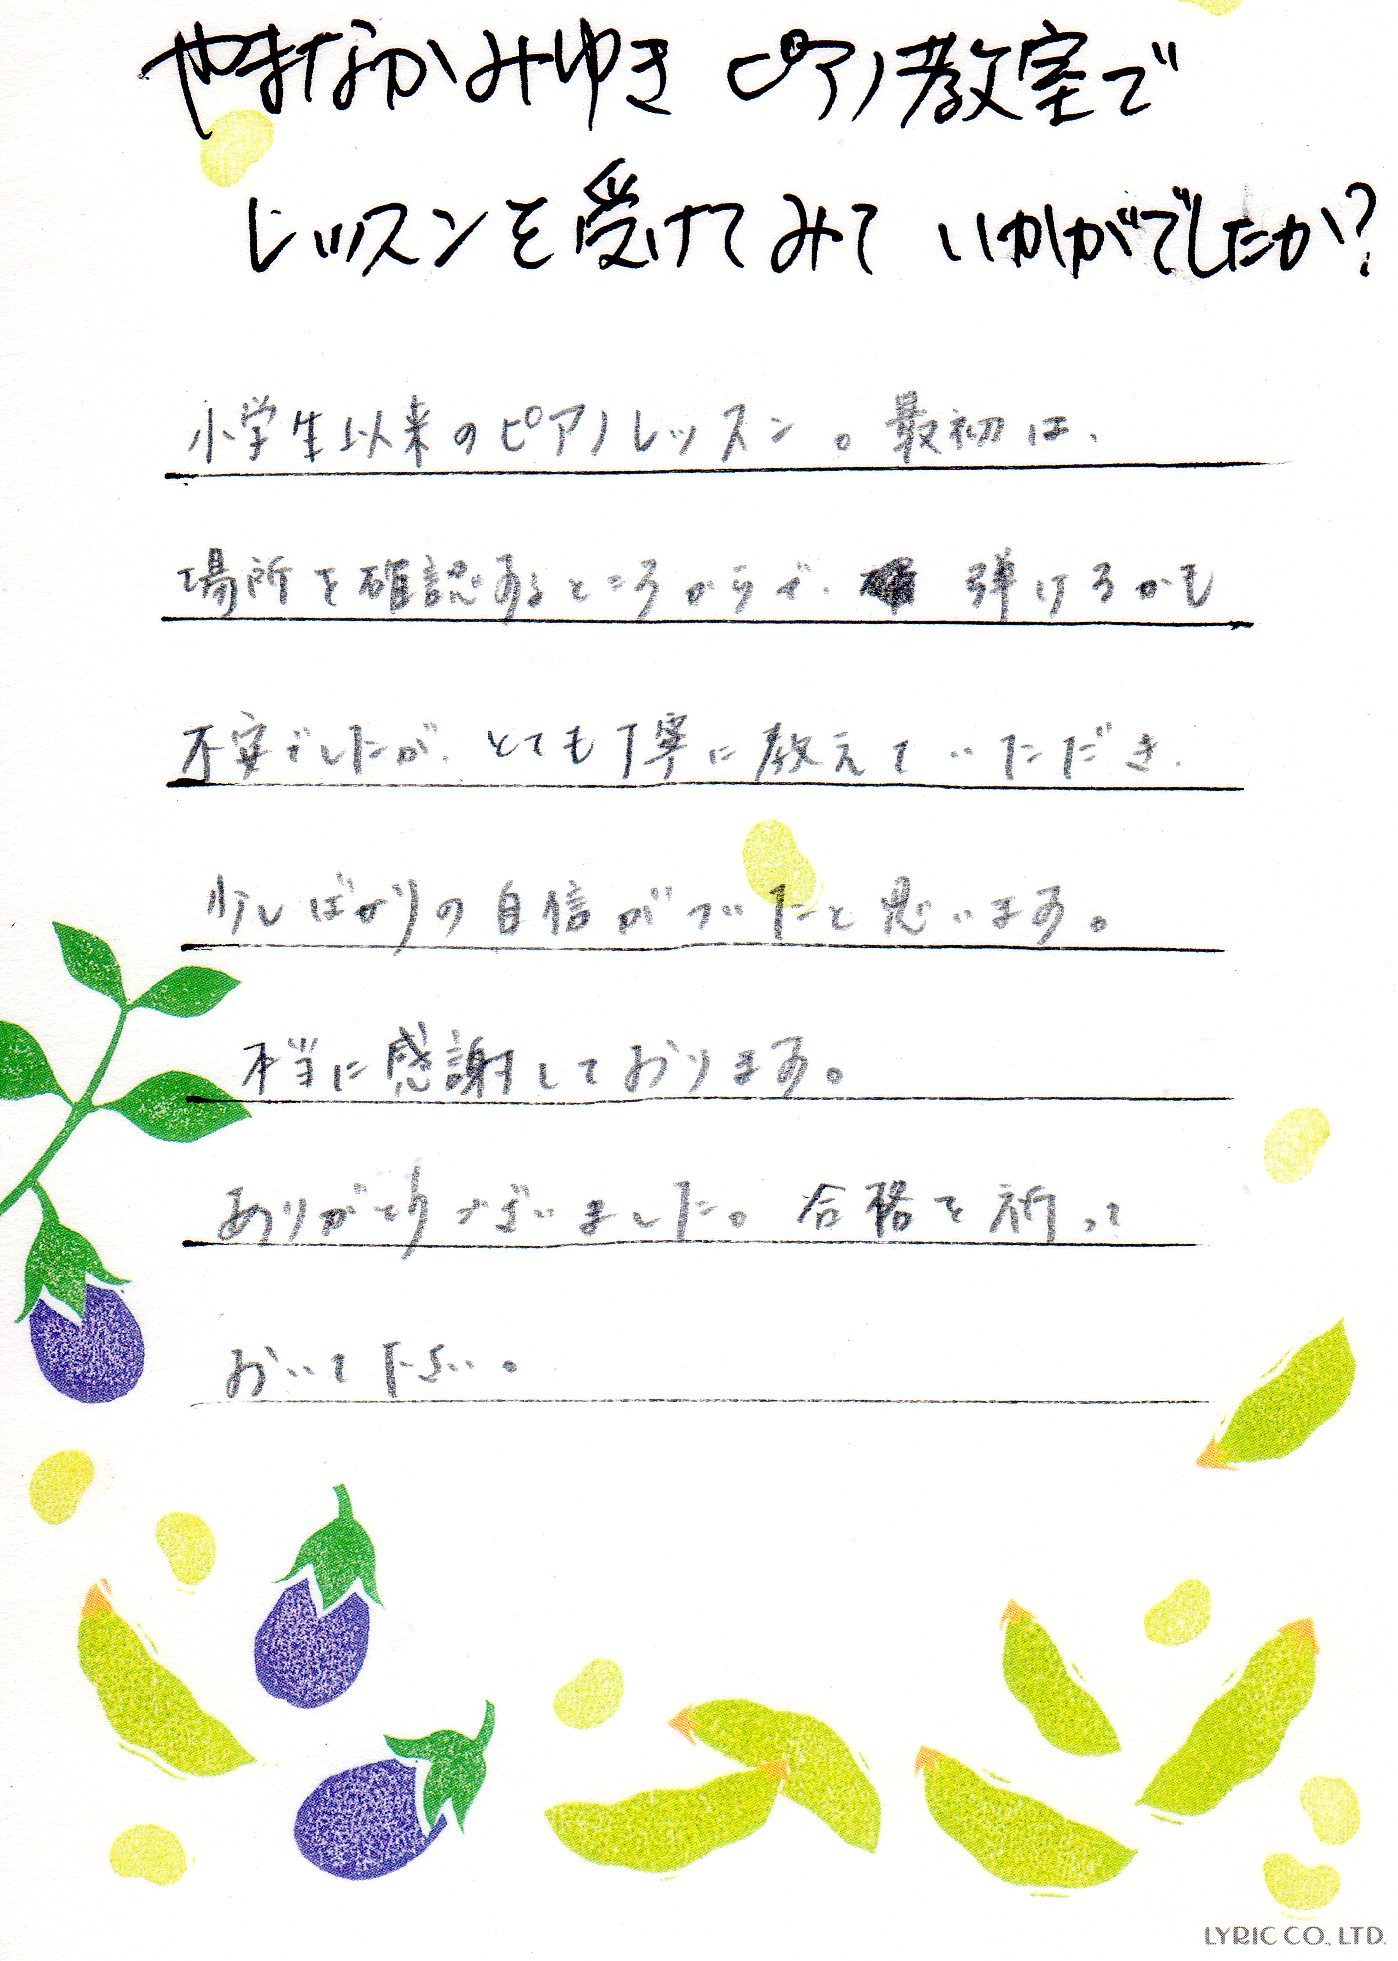 やまなかみゆき ピアノ教室で
レッスンを受けてみて いかがでしたか?
小学生以来のピアノレッスン。最初は、
場所を確認するところからで、 弾けるかも
不安でしたが、とても丁寧に教えていただき、
少しばかりの自信がついたと思います。
本当に感謝しております。
ありがとうございました。合格を祈って
おいて下さい。
LYRIC CO., LTD.